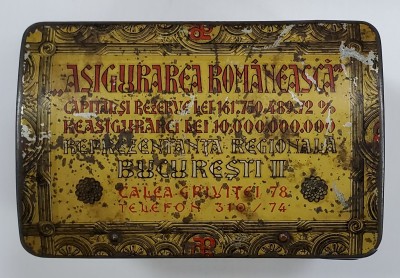 „ASIGURAREA ROMÂNEASCĂ”
CAPITAL ȘI REZERVE LEI 161.730.489.72 %
REASIGURĂRI LEI 10.000.000.000
REPREZENTANȚA REGIONALĂ
BUCUREȘTI II
CALEA GRIVIȚEI 78
TELEFON 370/74